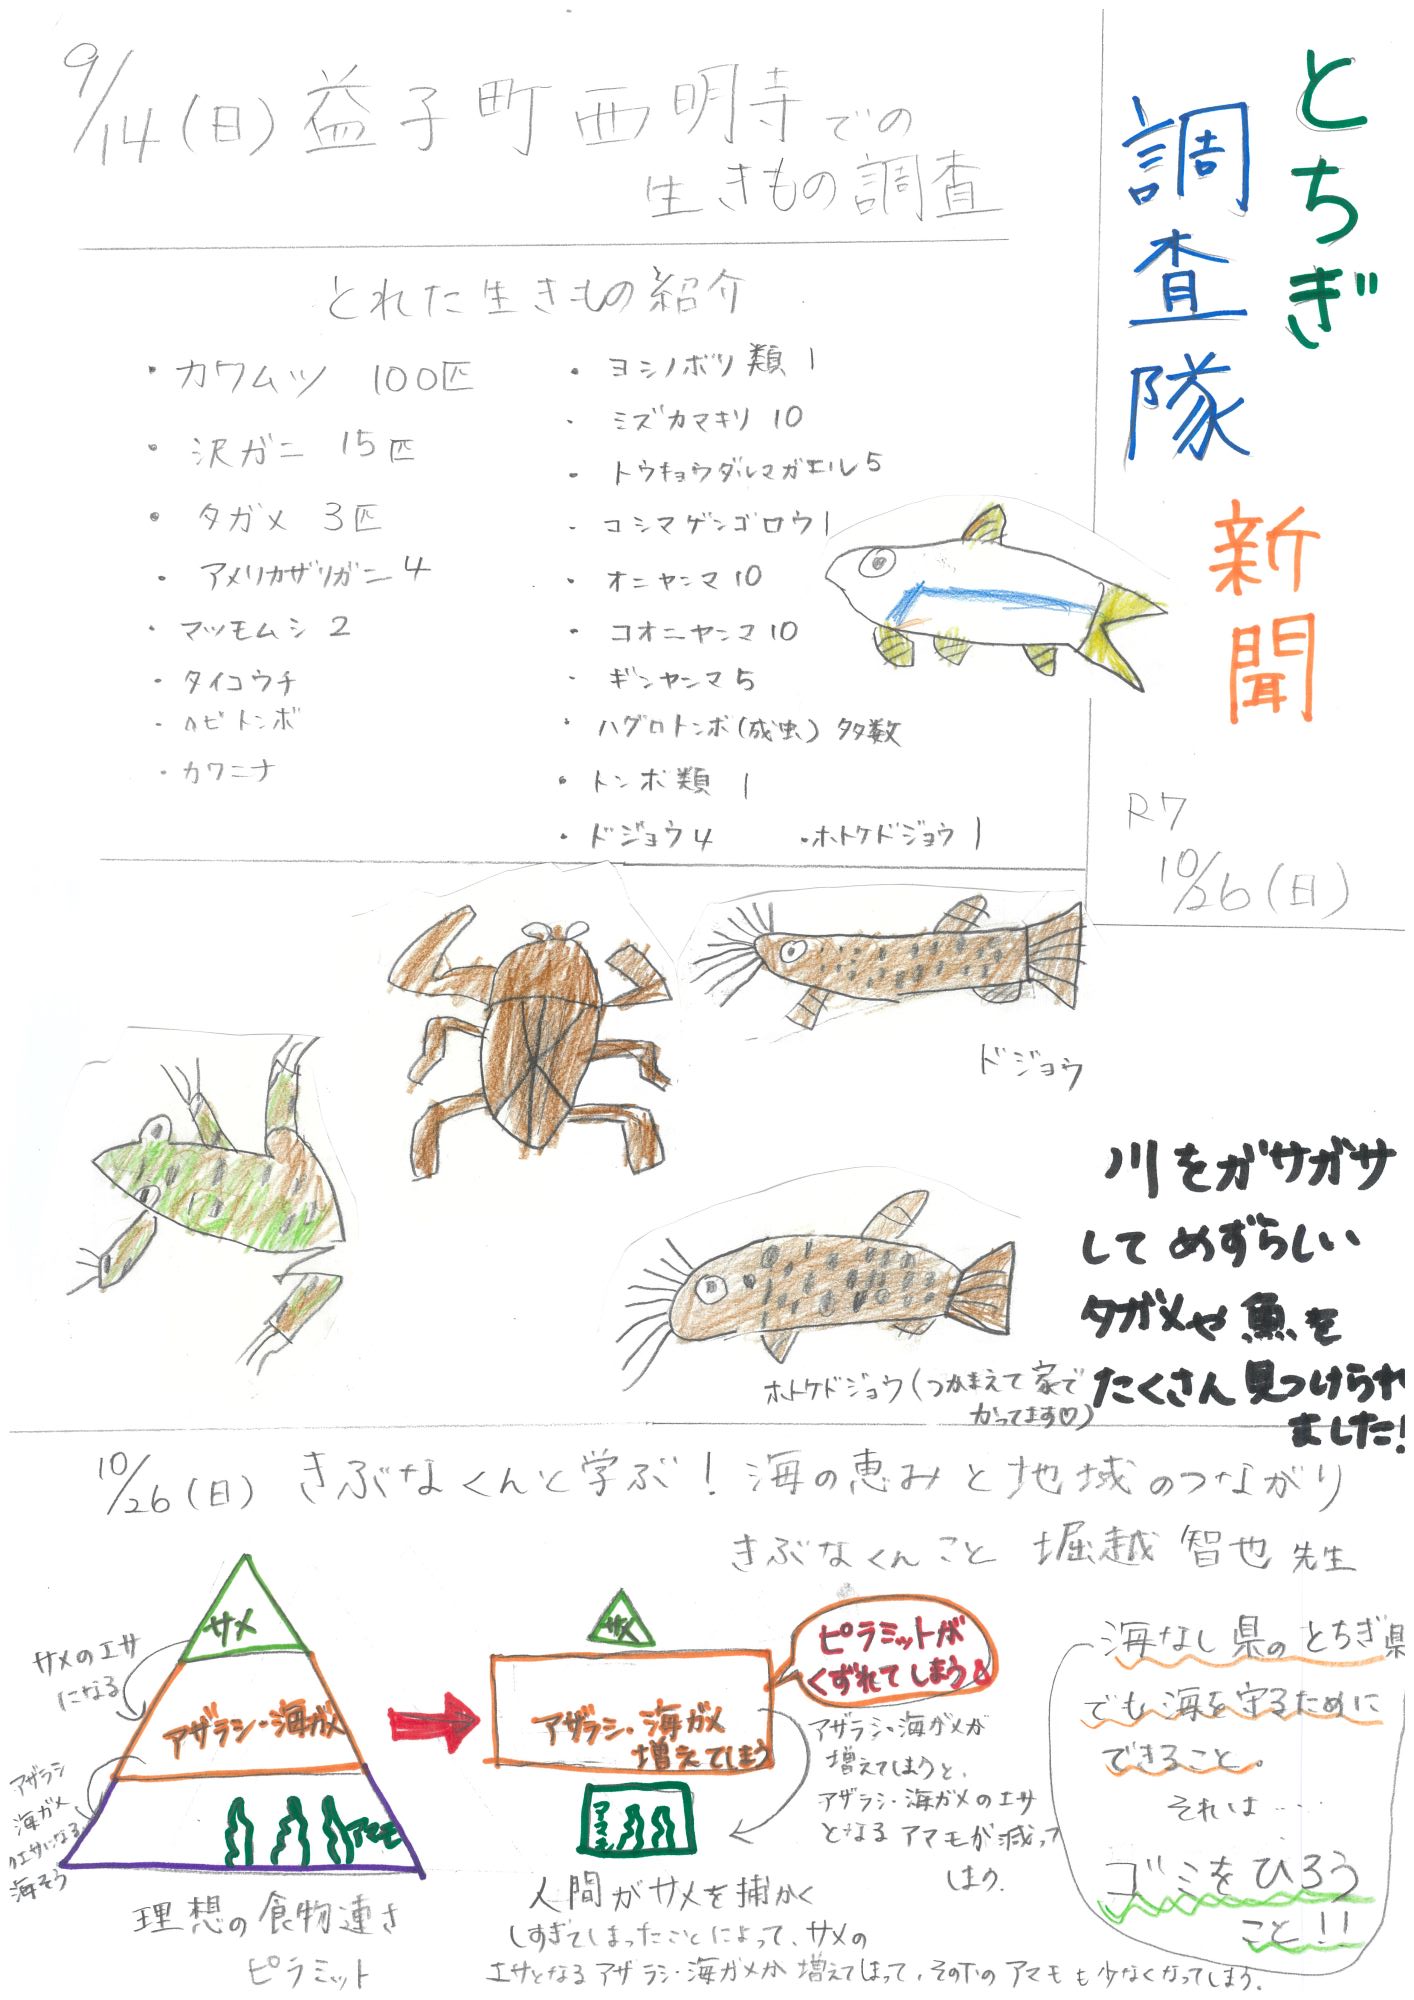 とちぎ
調査隊
新聞
R7
10/26(日)
9/14(日)益子町西明寺での
生きもの調査
とれた生きもの紹介
・カワムツ 100匹
・沢ガニ 15匹
・タガメ 3匹
・アメリカザリガニ 4
・マツモムシ 2
・タイコウチ
・ヘビトンボ
・カワニナ
・ヨシノボリ類 1
・ミズカマキリ 10
・トウキョウダルマガエル 5
・コシマゲンゴロウ 1
・オニヤンマ 10
・コオニヤンマ 10
・ギンヤンマ 5
・ハグロトンボ(成虫) 多数
・トンボ類 1
・ドジョウ 4 ・ホトケドジョウ 1
ドジョウ
ホトケドジョウ(つかまえて家で
かってます♡)
川をガサガサ
して めずらしい
タガメや魚を
たくさん見つけられ
ました!
10/26(日) きぶなくんと学ぶ!海の恵みと地域のつながり
きぶなくんこと 堀越 智也 先生
サメ
サメのエサ
になる
アザラシ・海ガメ
アザラシ
海ガメ
のエサになる
海そう
アマモ
理想の食物連さ
ピラミット
サメ
アザラシ・海ガメ
増えてしまう
アマモ
ピラミットが
くずれてしまう
アザラシ・海ガメが
増えてしまうと、
アザラシ・海ガメのエサ
となるアマモが減って
しまう.
人間がサメを捕かく
しすぎてしまったことによって、サメの
エサとなるアザラシ・海ガメが増えてしまって、その下のアマモも少なくなってしまう.
海なし県のとちぎ県
でも海を守るために
できること。
それは……
ゴミをひろう
こと!!